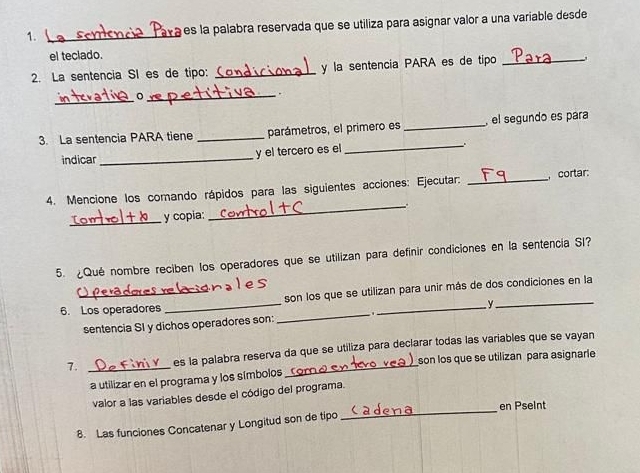 1. La sentencia Para es la palabra reservada que se utiliza para asignar valor a una variable desde
el teclado.
2. La sentencia SI es de tipo: Condicional y la sentencia PARA es de tipo Para,
interativa o repetitiva.
3. La sentencia PARA tiene ________ parámetros, el primero es ________, el segundo es para
indicar ________ y el tercero es el ________.
4. Mencione los comando rápidos para las siguientes acciones: Ejecutar: F9, cortar:
Control+X y copia: control+C.
5. ¿Qué nombre reciben los operadores que se utilizan para definir condiciones en la sentencia SI?
Operadores relacionales
6. Los operadores ________ son los que se utilizan para unir más de dos condiciones en la
sentencia SI y dichos operadores son: ________, ________ y ________
7. Definir es la palabra reserva da que se utiliza para declarar todas las variables que se vayan
a utilizar en el programa y los símbolos como entero real son los que se utilizan para asignarle
valor a las variables desde el código del programa.
8. Las funciones Concatenar y Longitud son de tipo cadena en PseInt